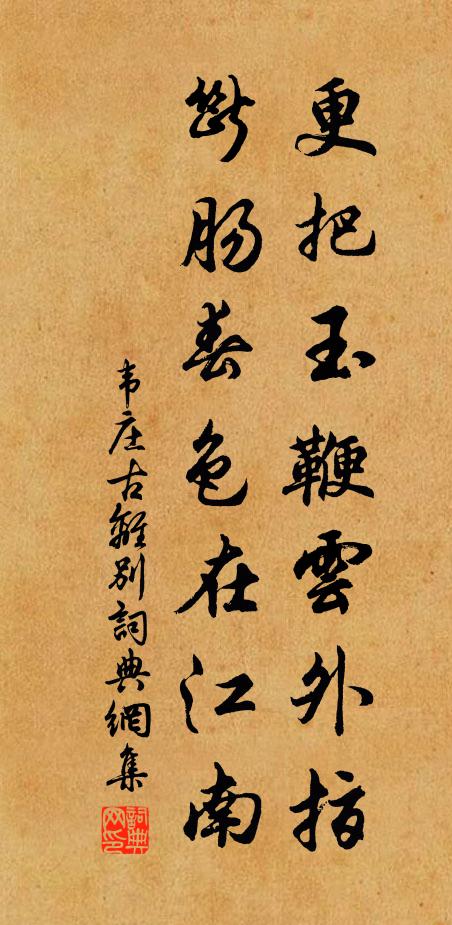 更把玉鞭雲外指
斷肠春色在江南
韦庄古離别詞典網集
詞典网印